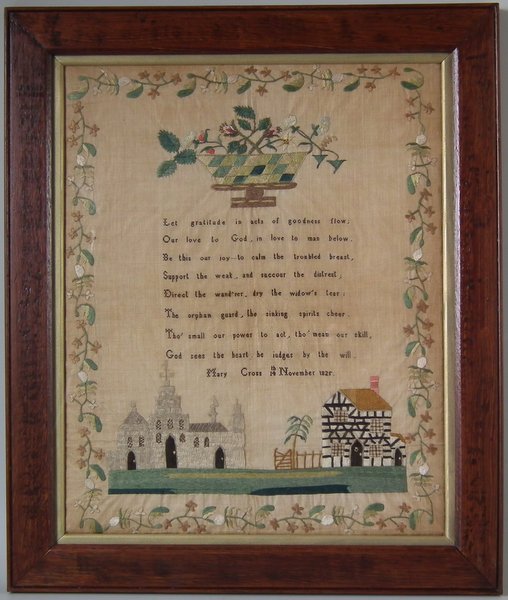 Let gratitude in acts of goodness flow;
Our love to God, in love to man below.
Be this our joy to calm the troubled breast,
Support the weak, and succour the distrest,
Direct the wand'rer, dry the widow's tear;
The orphan guard, the sinking spirits cheer.
Tho' small our power to act, tho' mean our skill,
God sees the heart, he judges by the will.
Mary Cross November